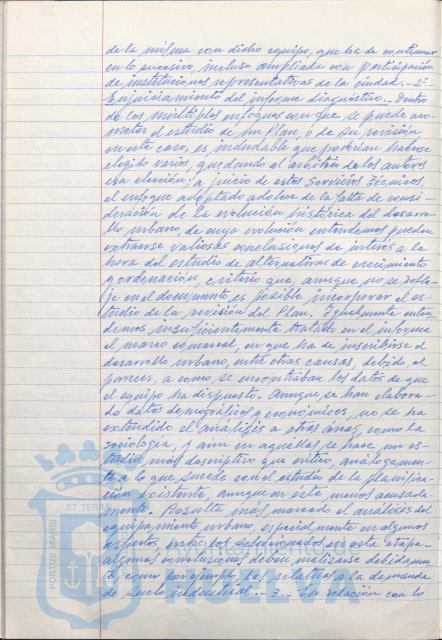 de la misma con dicho equipo, que ha de continuar
en lo sucesivo, incluso ampliada con participación
de instituciones representativas de la ciudad.- 2º.-
Enjuiciamiento del informe diagnóstico.- Dentro
de los múltiples enfoques con que se puede aco-
meter el estudio de un Plan, o de su revisión
en este caso, es indudable que podrían haberse
elegido varios, quedando al arbitrio de los autores
esa elección; a juicio de estos Servicios Técnicos,
el enfoque adoptado adolece de la falta de consi-
deración de la evolución histórica del desarro-
llo urbano, de cuya evolución entendemos pueden
extraerse valiosas conclusiones de interés a la
hora del estudio de alternativas de crecimiento
y ordenación, criterio que, aunque no se refle-
je en el documento, es posible incorporar al es-
tudio de la revisión del Plan. Igualmente enten-
demos, insuficientemente tratado en el informe
el marco comarcal, en que ha de inscribirse el
desarrollo urbano, entre otras causas, debido, al
parecer, a como se encontraban los datos de que
el equipo ha dispuesto. Aunque se han elabora-
do datos demográficos y económicos, no se ha
extendido el análisis a otras áreas, como la
sociología, y aun en aquéllas se hace un es-
tudio más descriptivo que crítico, análogamen-
te a lo que sucede con el estudio de la planifica-
ción existente, aunque en este menos acusada-
mente. Resulta más marcado el análisis del
equipamiento urbano, especialmente en algunos
aspectos, entre los seleccionados en esta etapa-
algunas conclusiones deben matizarse debidamen-
te, como por ejemplo, las relativas a la demanda
de suelo industrial.- 3.- En relación con lo
PORTUS MARIS
ET TERRAE
Ayuntamiento de
HUELVA